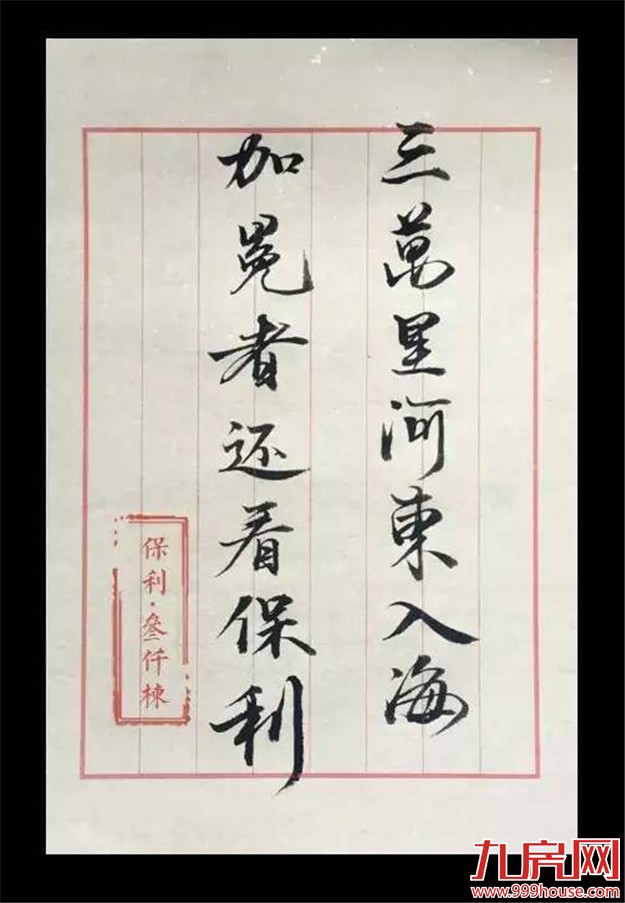 三萬里河東入海
加冕者还看保利
保利·叄仟棟
九房网
www.999house.com